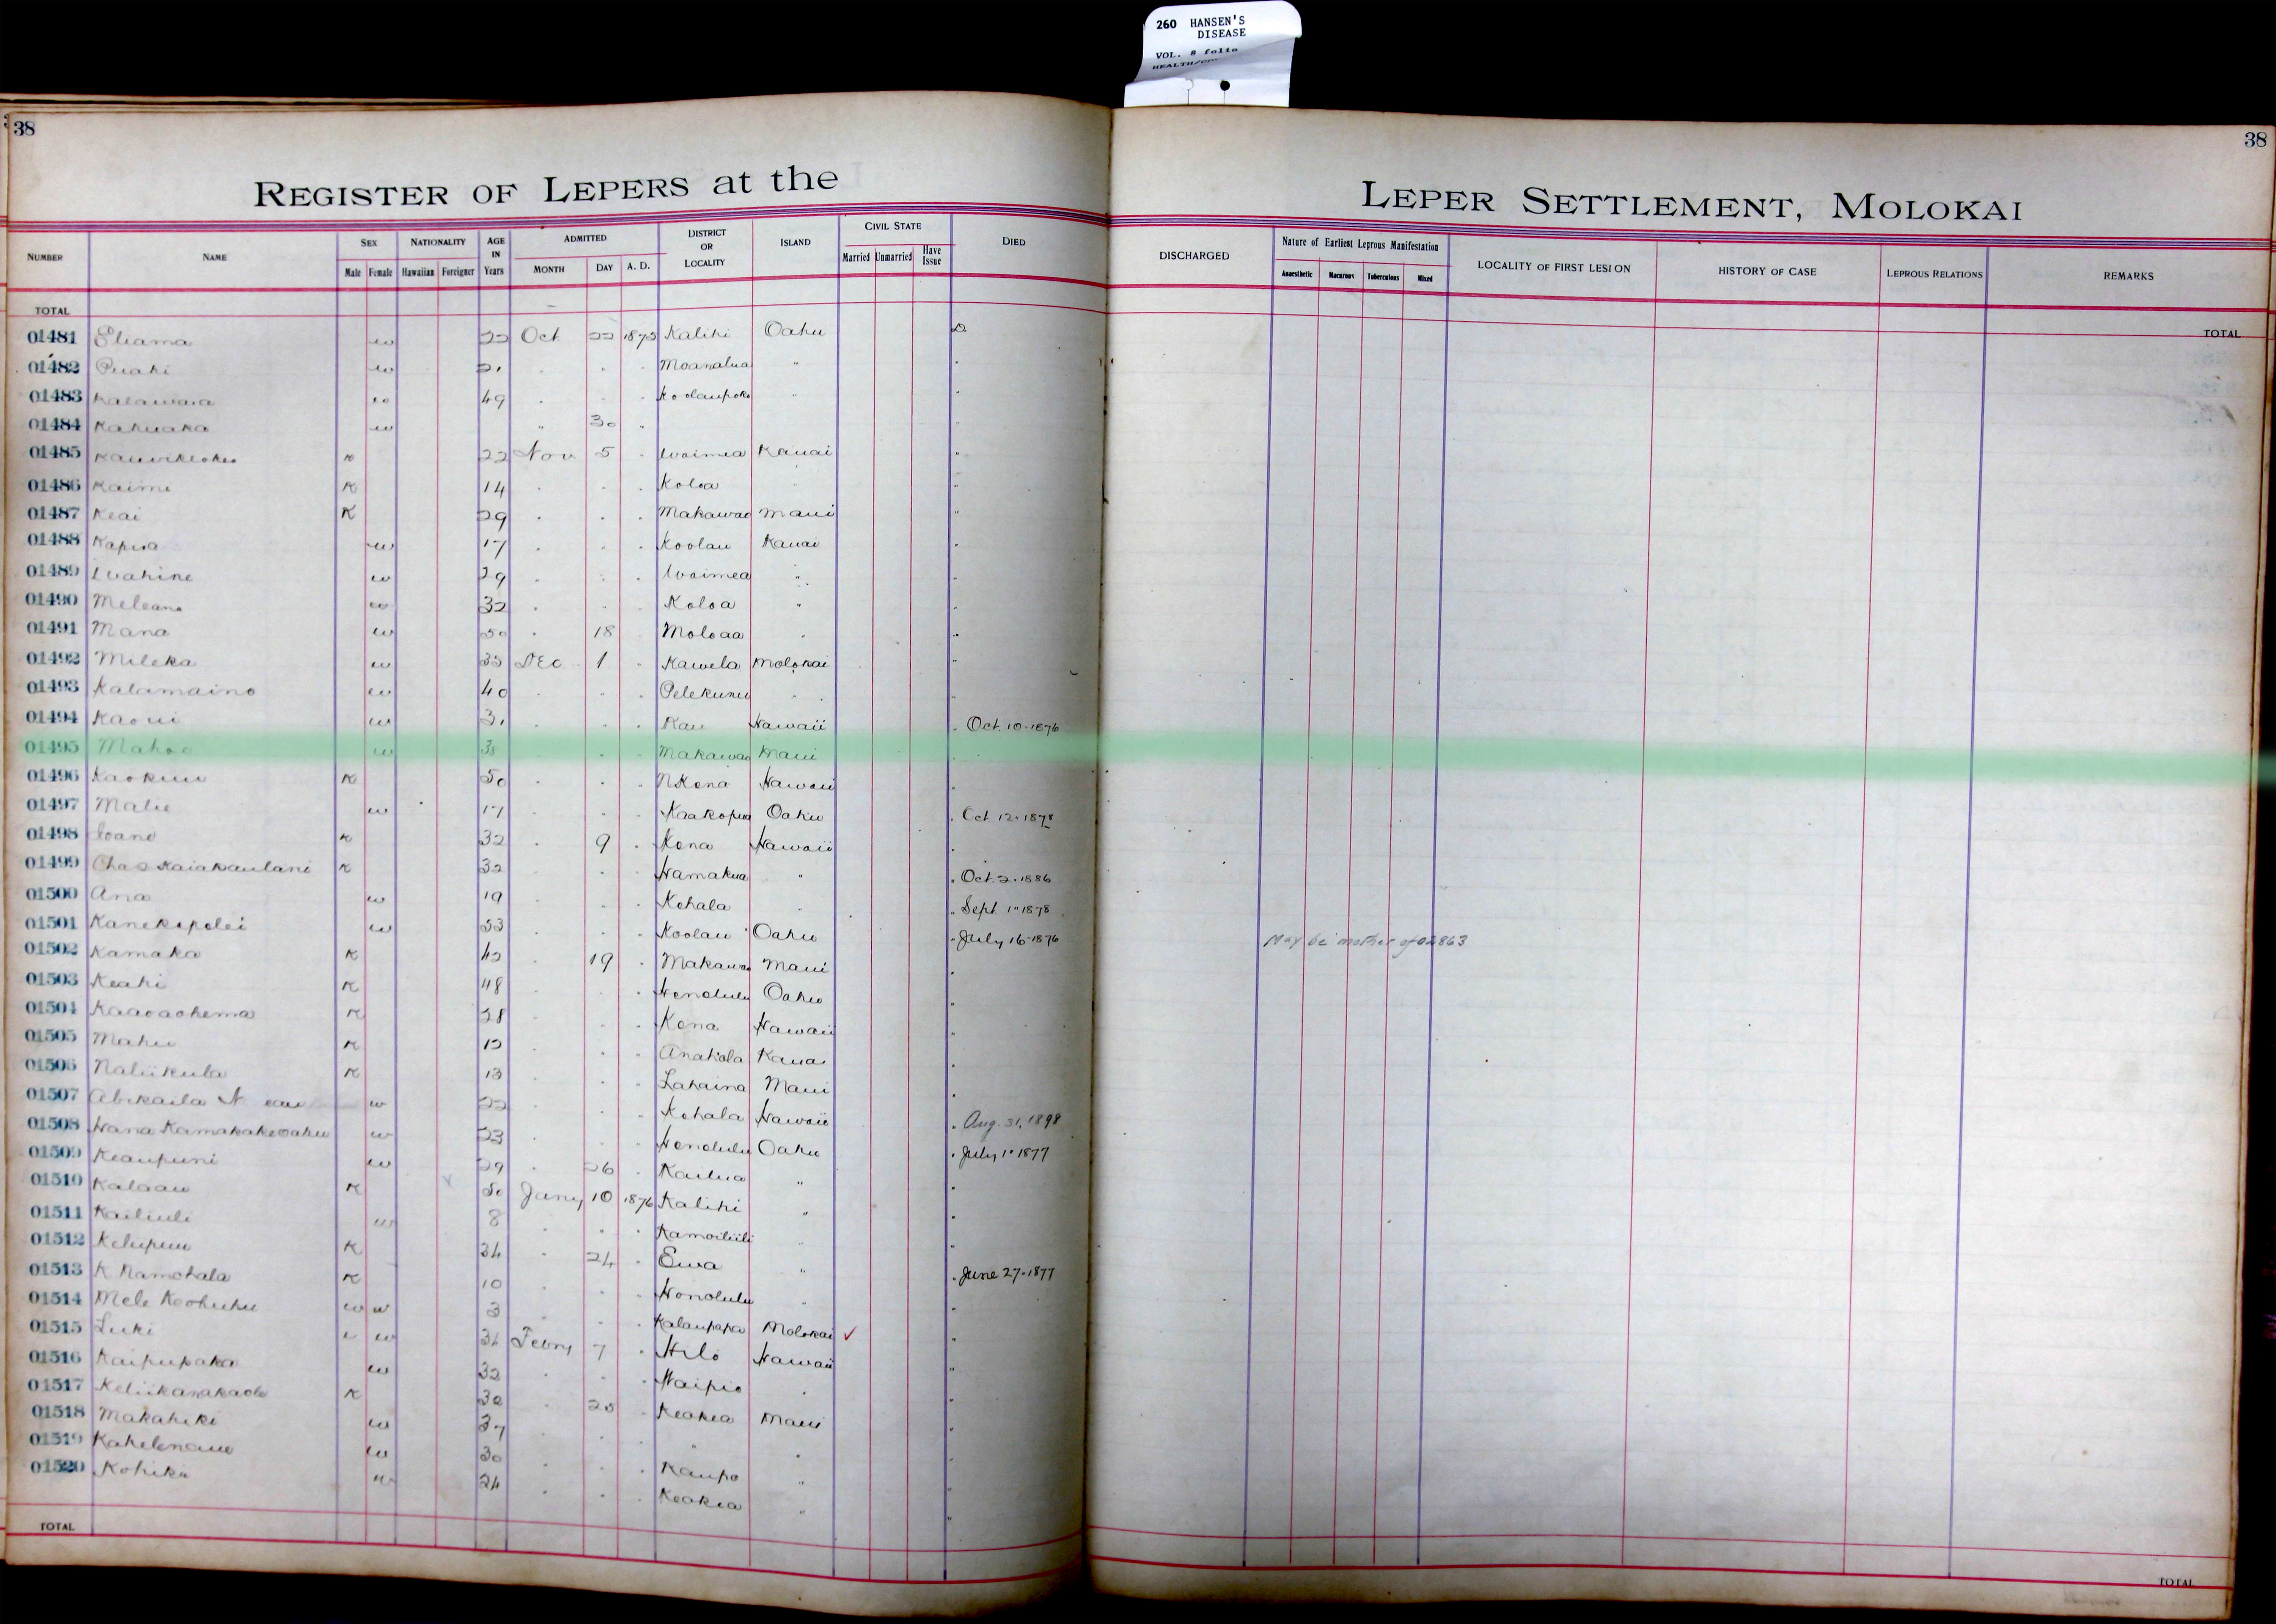 260 HANSEN'S
DISEASE
VOL. 8 folio
38
38
REGISTER OF LEPERS at the LEPER SETTLEMENT, MOLOKAI
NUMBER NAME SEX Male Female NATIONALITY Hawaiian Foreigner AGE IN Years ADMITTED MONTH DAY A. D. DISTRICT OR LOCALITY ISLAND CIVIL STATE Married Unmarried Have Issue DIED DISCHARGED Nature of Earliest Leprous Manifestation Anaesthetic Macurous Tuberculous Mixed LOCALITY OF FIRST LESION HISTORY OF CASE LEPROUS RELATIONS REMARKS
TOTAL TOTAL
01481 Eliama w 22 Oct 22 1875 Kalihi Oahu D
01482 Puahi w 21 " " " Moanalua "
01483 w 49 " " " Koolaupoko "
01484 Kahuaka w " 30 "
01485 K 22 Nov 5 " Waimea Kauai "
01486 Kaimi K 14 " " " Koloa "
01487 Keai K 29 " " " Makawao Maui "
01488 w 17 " " " Koolau Kauai "
01489 Wahine w 29 " " " Waimea " "
01490 Meleana w 32 " " " Koloa " "
01491 Mana w 50 " 18 " Moloaa " "
01492 Mileka w 35 Dec 1 " Kawela Molokai "
01493 Kalamaino w 40 " " " Pelekunu " "
01494 w 31 " " " Kau Hawaii " Oct. 10. 1876
01495 Mahoe w " " " Makawao Maui "
01496 Kaokuu K 50 " " " N Kona Hawaii "
01497 Malie w 17 " " " Kaakopua Oahu " Oct 12. 1878
01498 Ioane K 32 " 9 " Kona Hawaii "
01499 Chas Kaiakaulani K 32 " " " Hamakua " " Oct. 2. 1886
01500 Ana w 19 " " " Kohala " " Sept 1" 1878
01501 Kanekapolei w 53 " " " Koolau Oahu " July 16-1876 May be mother of 02863
01502 Kamaka K 42 " 19 " Makawao Maui "
01503 Keahi K 48 " " " Honolulu Oahu "
01504 K 28 " " " Kona Hawaii "
01505 Mahu K 12 " " " Anahola Kauai "
01506 Naliikula K 13 " " " Lahaina Maui "
01507 w 22 " " " Kohala Hawaii " Aug. 31, 1898
01508 Hana Kamakakeoahu w 23 " " " Honolulu Oahu " July 1" 1877
01509 Keaupuni w 29 " 26 " Kailua " "
01510 Kalaau K 50 Jany 10 1876 Kalihi " "
01511 Kailiuli w 8 " " " Kamoiliili " "
01512 Kelupuu K 34 " 24 " Ewa " "
01513 K Namohala K 10 " " " Honolulu " " June 27. 1877
01514 Mele Keohuhu w w 3 " " " Kalaupapa Molokai ✓ "
01515 Luki w 34 Febry 7 " Hilo Hawaii "
01516 Kaipupaka w 32 " " " Waipio " "
01517 Keliikanakaole K 30 " 25 " Keokea Maui "
01518 Makahiki w 37 " " " " " "
01519 w 30 " " " Kaupo " "
01520 w 24 " " " Keokea " "
TOTAL TOTAL